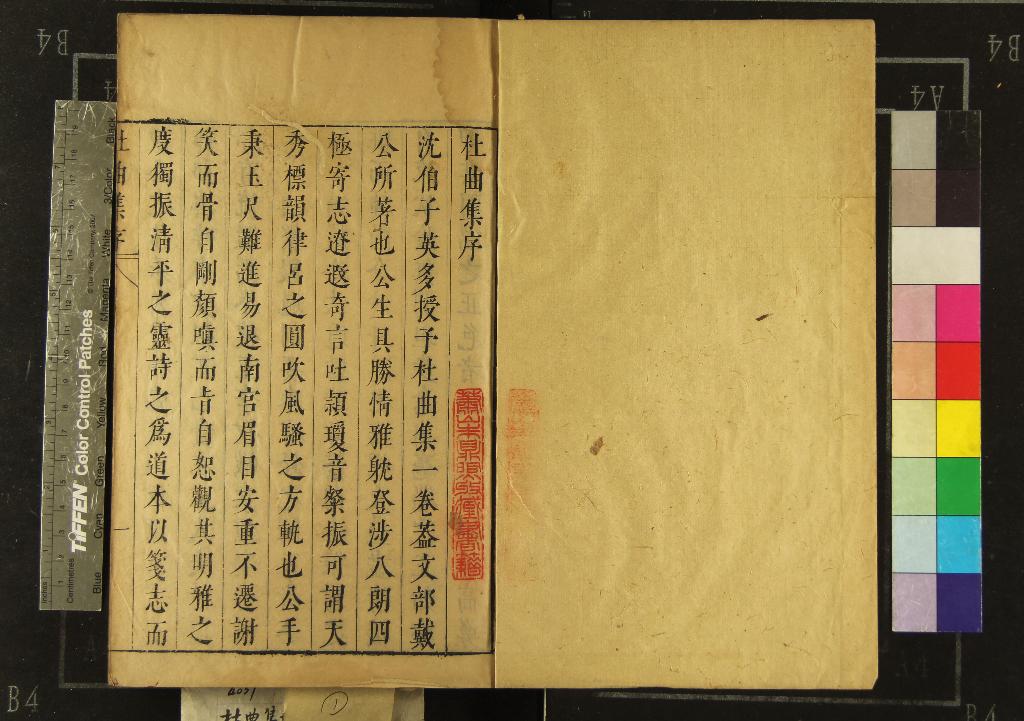 杜曲集序
沈伯子英多授予杜曲集一卷葢文部戴
公所著也公生具勝情雅躭登涉八朗四
極寄志遼遐奇言吐頴瓊音粲振可謂天
秀標韻律呂之圓吹風騷之方軌也公手
秉玉尺難進易退南宮眉目安重不遷謝
笑而骨自剛顏嗔而旹自恕觀其明雅之
度獨振清平之靈詩之爲道本以箋志而
杜曲集序
蕭山朱鼎煦收藏書籍
TIFFEN Color Control Patches
Blue Cyan Green Yellow Red Magenta White 3/Color Black
Inches
Centimetres
B4
B4
A4
B4
B4
杜曲集
1